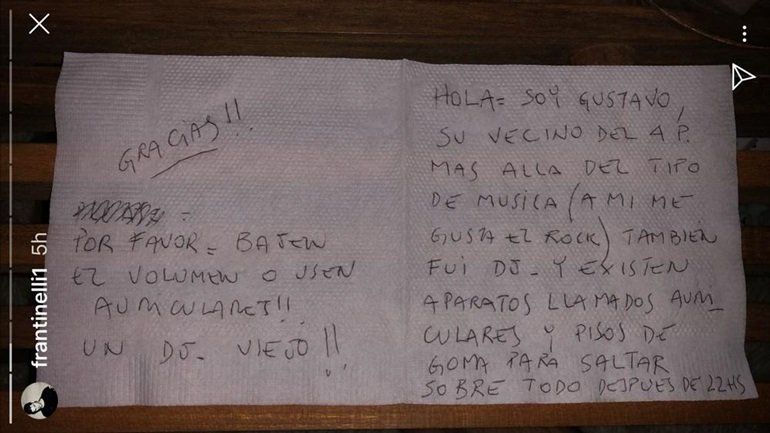 HOLA= SOY GUSTAVO,
SU VECINO DEL 4 P.
MAS ALLA DEL TIPO
DE MUSICA (A MI ME
GUSTA EL ROCK) TAMBIEN
FUI DJ- Y EXISTEN
APARATOS LLAMADOS AURI-
CULARES Y PISOS DE
GOMA PARA SALTAR
SOBRE TODO DESPUES DE 22HS
GRACIAS!!
POR FAVOR= BAJEN
EL VOLUMEN O USEN
AURICULARES!!
UN DJ- VIEJO!!
frantinelli1 5h